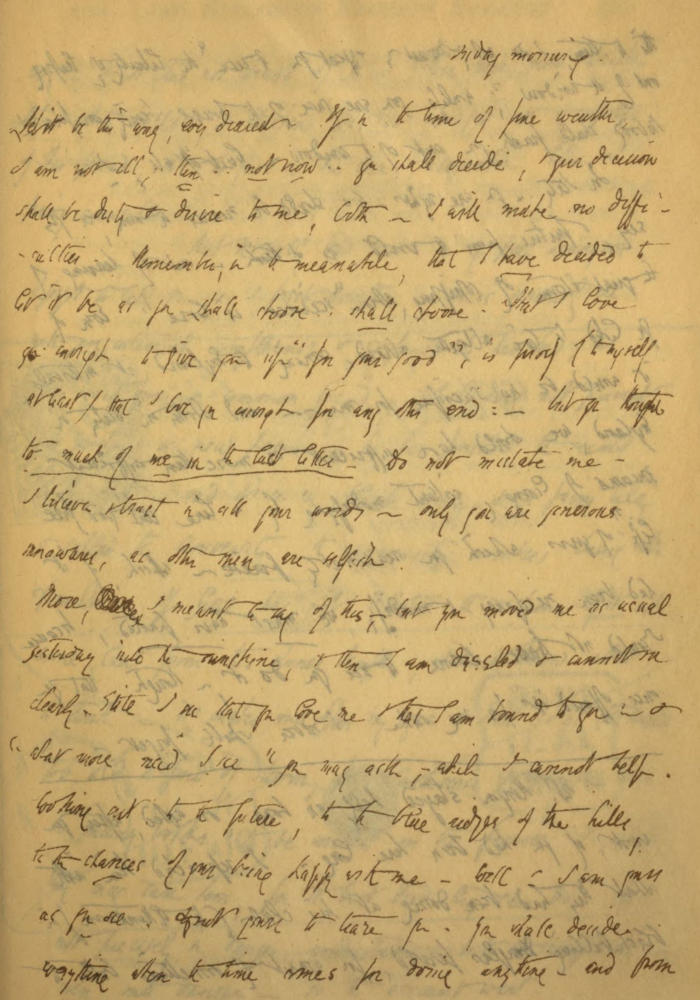 Friday morning.
Let it be this way, ever dearest. If in the time of fine weather,
I am not ill, .. then .. not now .. you shall decide, & your decision
shall be duty & desire to me, both — I will make no diffi-
-culties. Remember, in the meanwhile, that I have decided to
let it be as you shall choose .. shall choose. That I love
you enough to give you up "for your good", is proof (to myself
at least) that I love you enough for any other end: — But you thought
too much of me in the last letter. Do not mistake me —
I believe & trust in all your words — only you are generous
unawares, as other men are selfish.
More, I meant to say of this, — but you moved me as usual
yesterday into the sunshine, & then I am dazzled & cannot see
clearly. Still I see that you love me & that I am bound to you: — &
"what more need I see" you may ask, — while I cannot help
looking out to the future, to the blue ridges of the hills,
to the chances of your being happy with me — Well! I am yours
as you see .. & not yours to teaze you. You shall decide
everything when the time comes for doing anything — and from